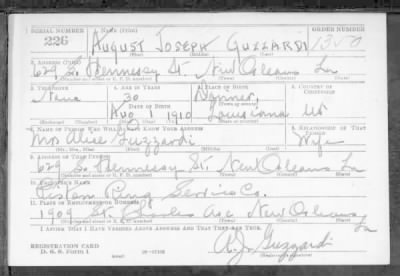 SERIAL NUMBER 1. NAME (Print) ORDER NUMBER
226 AUGUST JOSEPH GUZZARDI 1350
(First) (Middle) (Last)
2. ADDRESS (Print)
629 S. Hennessy St. New Orleans La
3. TELEPHONE 4. AGE IN YEARS 5. PLACE OF BIRTH 6. COUNTRY OF CITIZENSHIP
None 30 Kenner,
DATE OF BIRTH
Aug 1 1910 Louisiana
7. NAME OF PERSON WHO WILL ALWAYS KNOW YOUR ADDRESS 8. RELATIONSHIP OF THAT PERSON
Mrs Alice Guzzardi Wife
9. ADDRESS OF THAT PERSON
629 S. Hennessy St. New Orleans La
10. EMPLOYER'S NAME
Piston Ring Service Co.
11. PLACE OF EMPLOYMENT OR BUSINESS
1909 St. Charles Ave New Orleans La
I AFFIRM THAT I HAVE VERIFIED ABOVE ANSWERS AND THAT THEY ARE TRUE.
REGISTRATION CARD
D. S. S. Form 1
A.J. Guzzardi